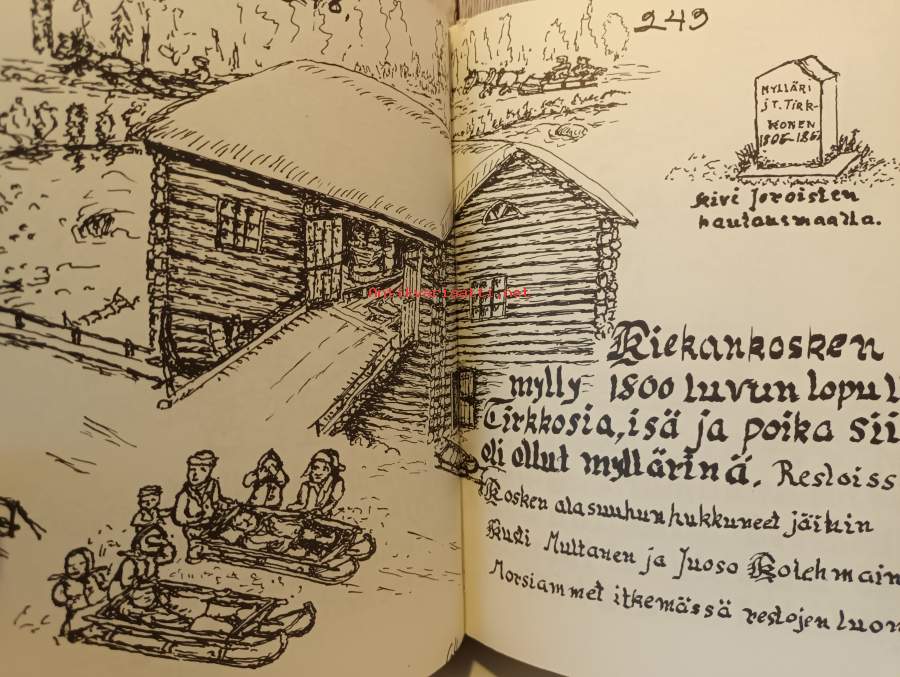 249
MYLLÄRI
J T. TIRK-
KONEN
1805-186
kivi Joroisten
hautausmaalla.
Antikvariaatti.net
Kiekankosken
mylly 1800 luvun lopu
Tirkkosia, isä ja poika sii
oli ollut myllärinä. Restoiss
Kosken alasuuhun hukkuneet jäitiin
Kusti Multanen ja Juoso Kolehmain
Morsiammet itkemässä restojen luon